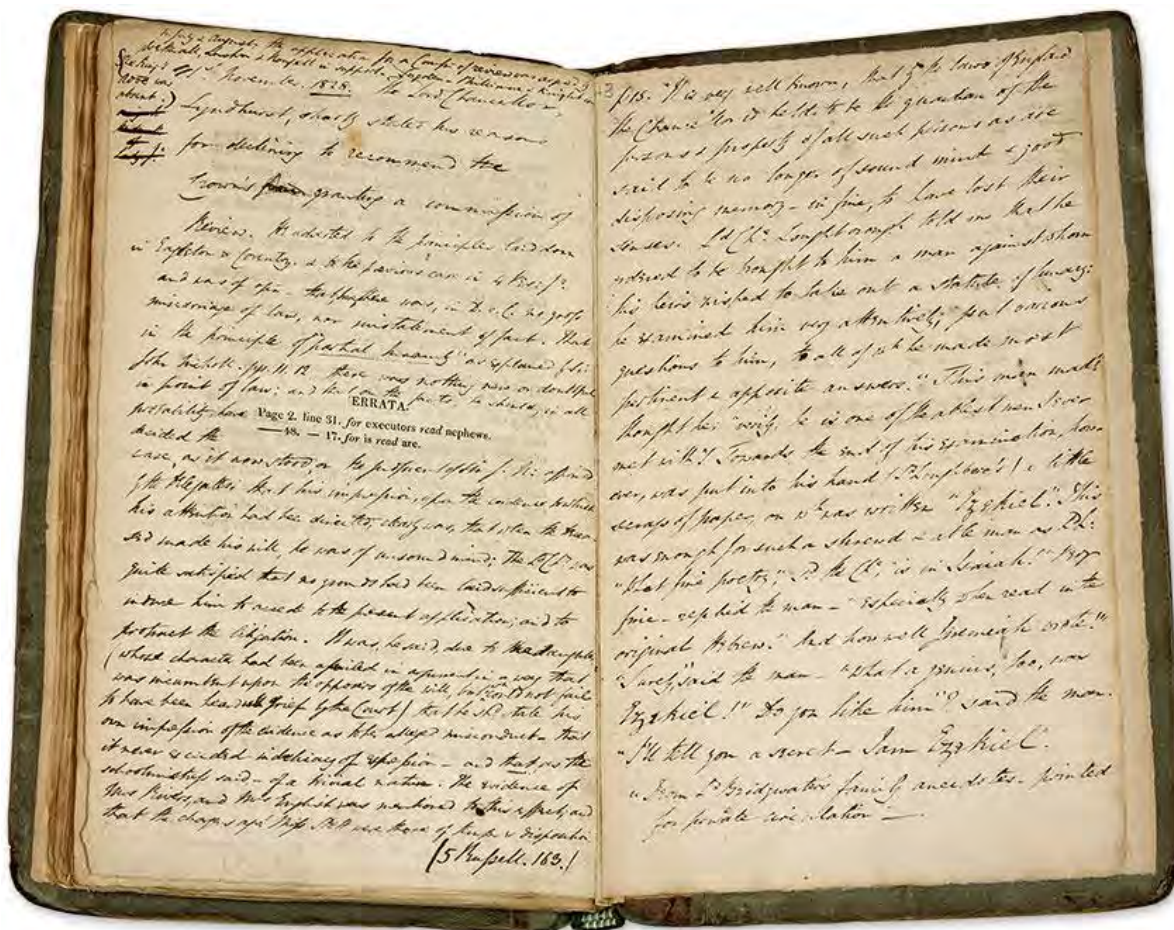 July & August, the application for a Comm. of review was argued by
Lushington & Horsfall in support
November 1828. the Lord Chancellor,
note was
about:)
Lyndhurst, shortly stated his reasons
for declining to recommend the
Crown's granting a commission of
Review. He adverted to the principles laid down
in Eagleton & Coventry, & to the previous case in 4 Ves: Jr.
and was of opin. that there was, in D. v. C. no gross
miscarriage of law, nor mistatement of fact. That
in the principle of "partial insanity" as explained by Sir
John Nicholl. pps. 11. 12 there was nothing new or doubtful
in point of law; and he on the facts, he should, in all
ERRATA.
probability, have
Page 2. line 31. for executors read nephews.
——48. — 17. for is read are.
decided the
case, as it now stood, on the
of the Delegates that his impression, upon the evidence to which
his attention had been directed, clearly was, that when the decea-
sed made his will, he was of unsound mind; The Ld. Chr. was
quite satisfied that no grounds had been laid sufficient to
induce him to accede to the present application, and to
protract the litigation. It was, he said, due to the daughter
(whose character had been assailed in argument in a way that
was incumbent upon the opposers of the will, but cod. not fail
to have been heard with grief by the Court) that he shd. state his
own impression of the evidence as to the alleged misconduct – that
it never exceeded indelicacy of expression – and that as the
schoolmistress said – of a trivial nature. The evidence of
Mrs and Mrs English was mentioned to this effect, and
that the charges agst. Miss were those of temper & disposition
(5 Russell. 163.)
p. 15. "It is very well known, that by the laws of England
the Chancellor is held to be the guardian of the
persons & property of all such persons as are
said to be no longer of sound mind & good
disposing memory – in fine, to have lost their
senses. Ld. Chr. Loughborough told me that he
ordered to be brought to him a man against whom
his heirs wished to take out a statute of lunacy:
he examined him very attentively, put various
questions to him, to all of wh. he made most
pertinent & apposite answers. "This man mad?
thought he: verily, he is one of the ablest men I ever
met with"! Towards the end of his examination, how-
ever, was put into his hand (Ld. Loughboro's) a little
scrap of paper, on wh. was written "Ezekiel". This
was enough for such a shrewd & able man as Ld. L:
"What fine poetry," sd. the Chr., "is in Isaiah!" "Very
fine – replied the man – "Especially when read in the
original Hebrew." And how well Jeremiah wrote!"
"Surely," said the man – "What a genius, too, was
Ezekiel!" "Do you like him"? said the man.
"I'll tell you a secret – I am Ezekiel".
"From Ld. Bridgwater's family anecdotes – printed
for private circulation —